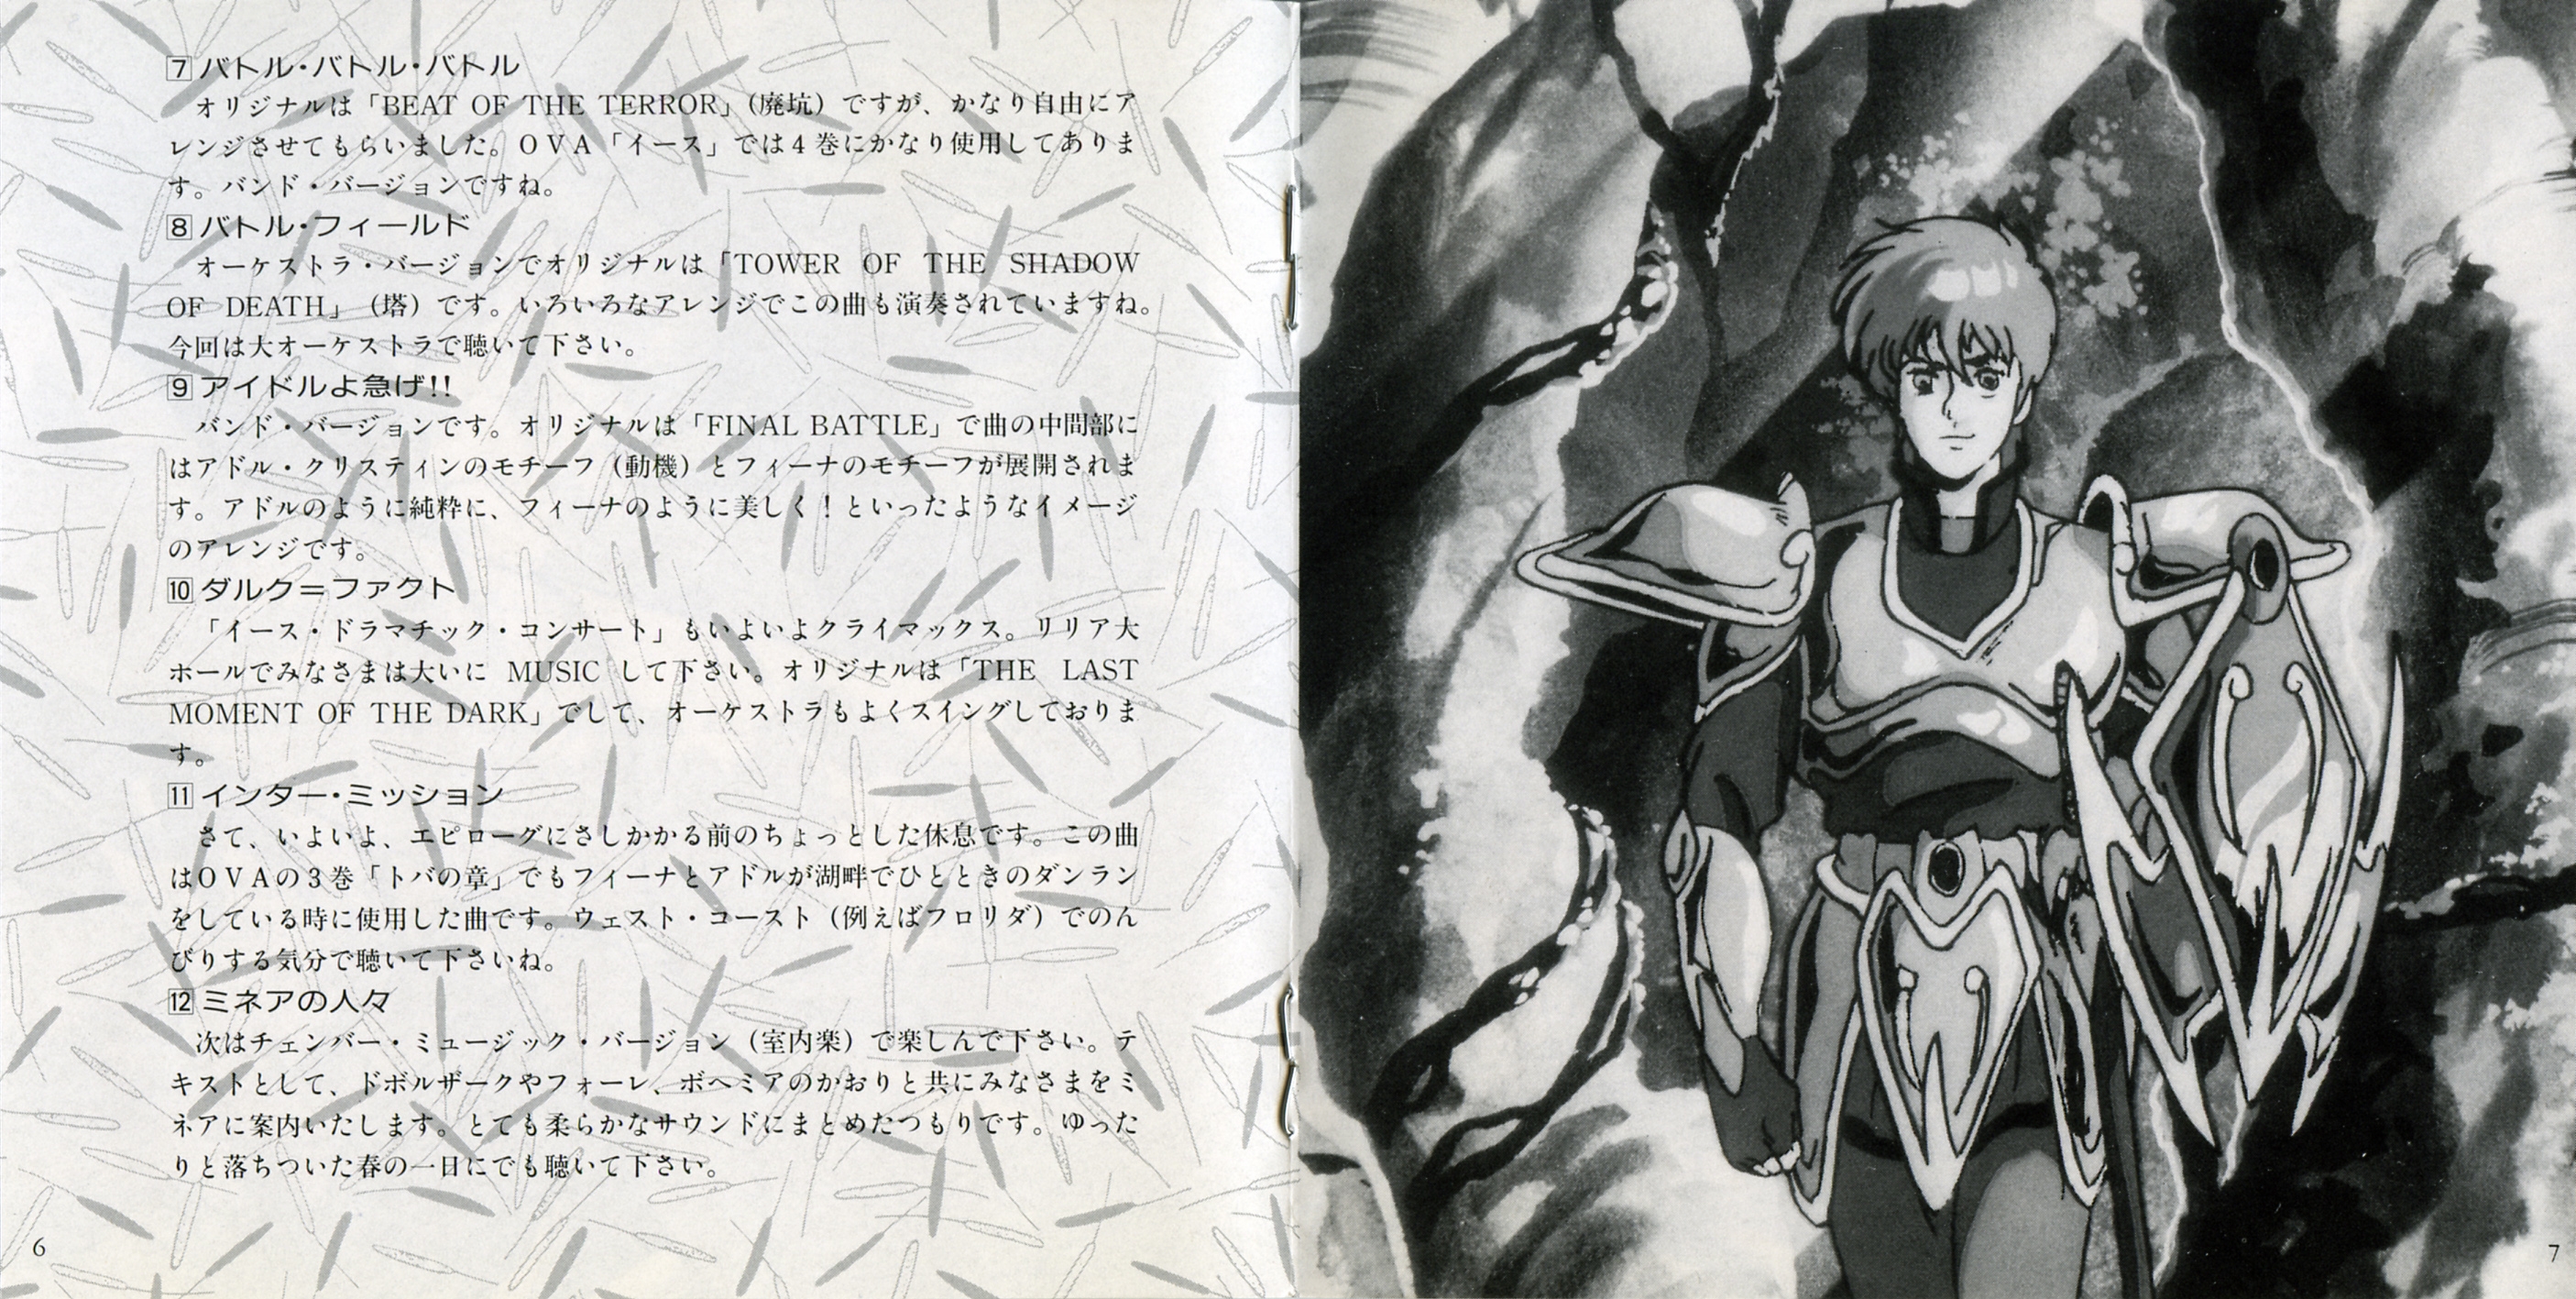 7 バトル・バトル・バトル
オリジナルは「BEAT OF THE TERROR」(廃坑) ですが、かなり自由にア
レンジさせてもらいました。OVA「イース」では4巻にかなり使用してありま
す。バンド・バージョンですね。
8 バトル・フィールド
オーケストラ・バージョンでオリジナルは「TOWER OF THE SHADOW
OF DEATH」(塔) です。いろいろなアレンジでこの曲も演奏されていますね。
今回は大オーケストラで聴いて下さい。
9 アイドルよ急げ!!
バンド・バージョンです。オリジナルは「FINAL BATTLE」で曲の中間部に
はアドル・クリスティンのモチーフ (動機) とフィーナのモチーフが展開されま
す。アドルのように純粋に、フィーナのように美しく！といったようなイメージ
のアレンジです。
10 ダルク＝ファクト
「イース・ドラマチック・コンサート」もいよいよクライマックス。リリア大
ホールでみなさまは大いに MUSIC して下さい。オリジナルは「THE LAST
MOMENT OF THE DARK」でして、オーケストラもよくスイングしておりま
す。
11 インター・ミッション
さて、いよいよ、エピローグにさしかかる前のちょっとした休息です。この曲
はOVAの3巻「トバの章」でもフィーナとアドルが湖畔でひとときのダンラン
をしている時に使用した曲です。ウェスト・コースト (例えばフロリダ) でのん
びりする気分で聴いて下さいね。
12 ミネアの人々
次はチェンバー・ミュージック・バージョン (室内楽) で楽しんで下さい。テ
キストとして、ドボルザークやフォーレ、ボヘミアのかおりと共にみなさまをミ
ネアに案内いたします。とても柔らかなサウンドにまとめたつもりです。ゆった
りと落ちついた春の一日にでも聴いて下さい。
6
7